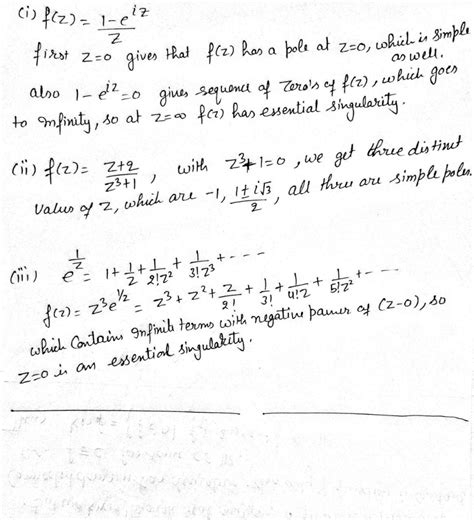 (i) f(z) = (1-e^{iz})/z
first z=0 gives that f(z) has a pole at z=0, which is simple
as well.
also 1-e^{iz}=0 gives sequence of zero's of f(z), which goes
to infinity, so at z=∞ f(z) has essential singularity.
(ii) f(z) = (z+2)/(z^3+1), with z^3+1=0, we get three distinct
values of z, which are -1, (1±i√3)/2, all three are simple poles.
(iii) e^{1/z} = 1+1/z+1/(2!z^2)+1/(3!z^3)+----
f(z) = z^3e^{1/z} = z^3+z^2+z/2!+1/3!+1/(4!z)+1/(5!z^2)+---
which contains infinite terms with negative power of (z-0), so
z=0 is an essential singularity.